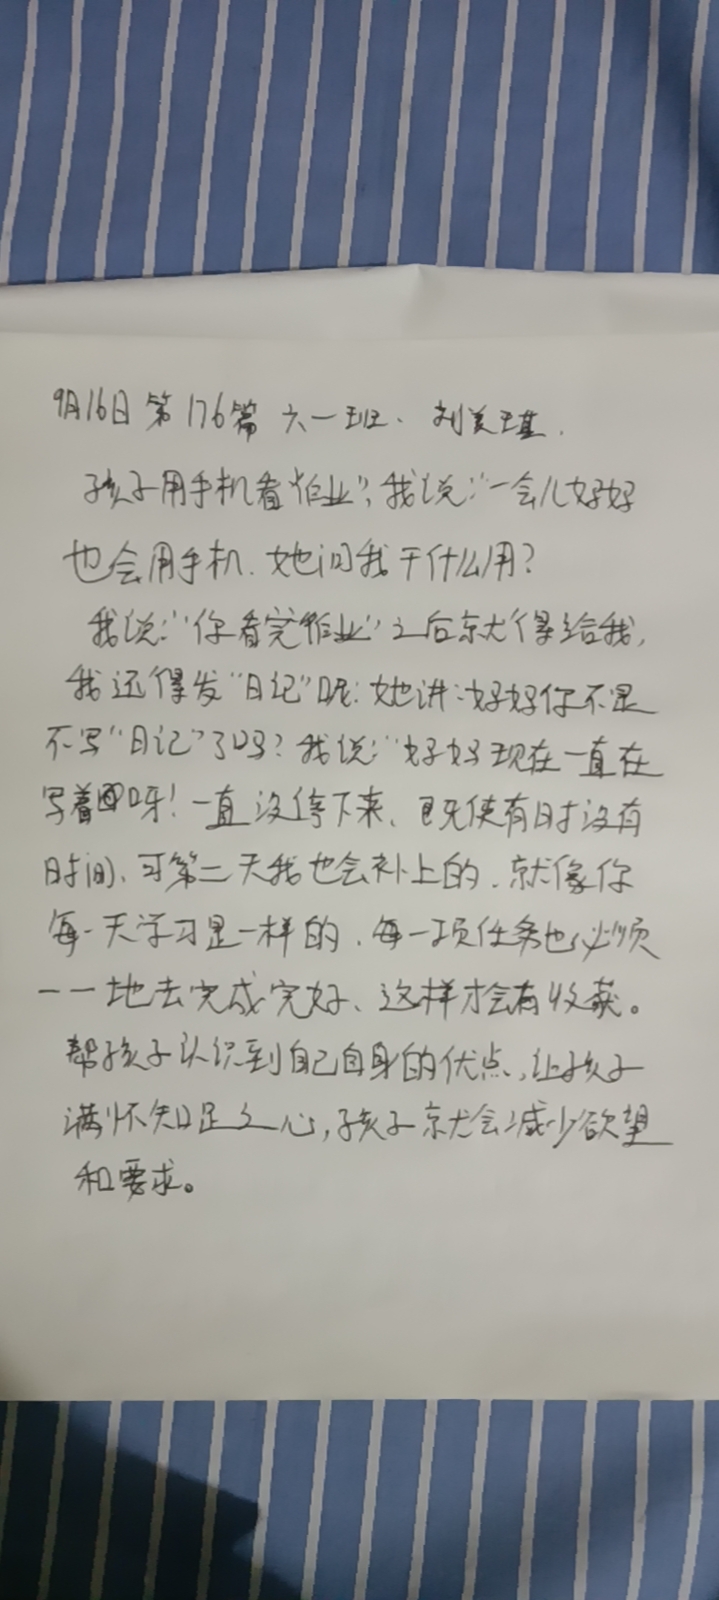 9月16日第176篇 六一班、刘美琪.
孩子用手机看"作业",我说:"一会儿好好
也会用手机.她问我干什么用?
我说:"你看完"作业"之后就得给我,
我还得发"日记"呢:她讲:好好你不是
不写"日记"了吗?我说:"好好现在一直在
写着呀!一直没停下来、既使有时没有
时间、可第二天我也会补上的、就像你
每一天学习是一样的、每一项任务也必须
一一地去完成完好、这样才会有收获。
帮孩子认识到自己自身的优点,让孩子
满怀知足之心,孩子就会减少欲望
和要求。